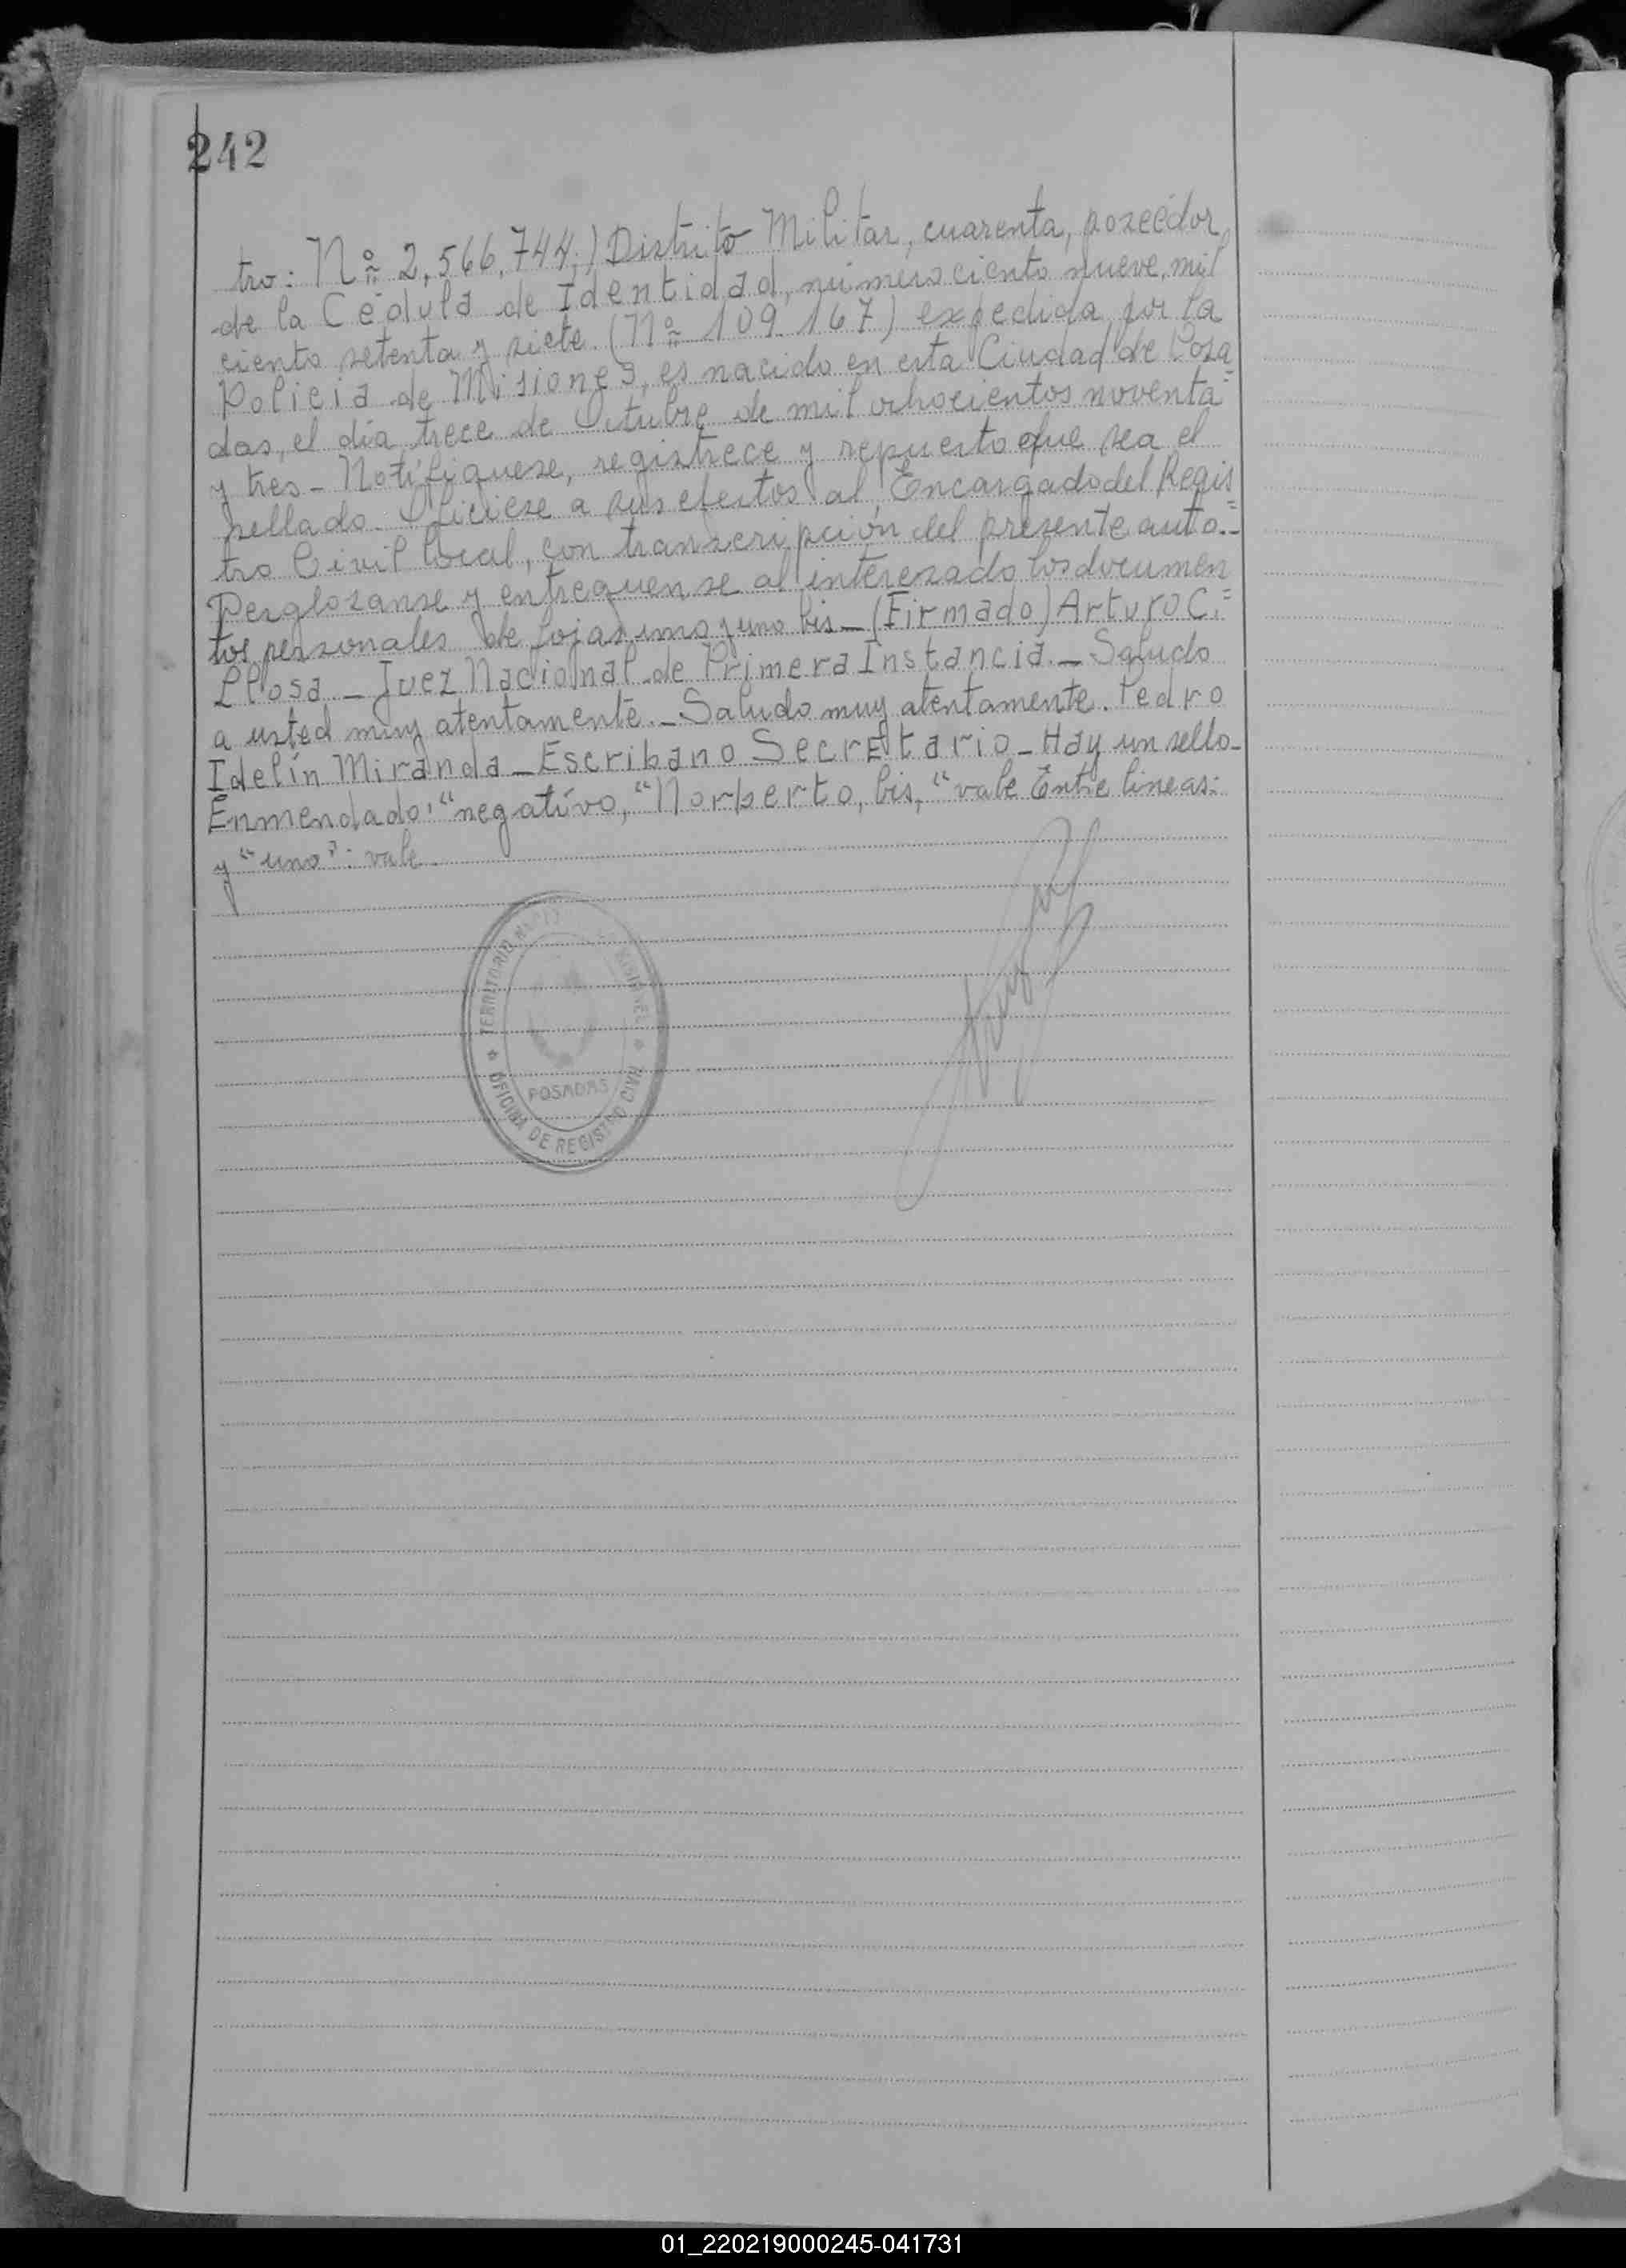 242
tro: Nº 2,566,744,) Distrito Militar, cuarenta, pozeédor
de la Cédula de Identidad, número ciento nueve, mil
ciento setenta y siete. (Nº 109.167) expedida por la
Policia de Misiones, es nacido en esta Ciudad de Posa=
das, el día trece de Octubre de mil ochocientos noventa
y tres_ Notifíquese, registrece y repuesto que sea el
sellado. Ofíciese a sus efectos al Encargado del Regis=
tro Civil local, con transcripción del presente auto._
Desglozanse y entreguense al interezado los documen=
tos personales de fojas uno y uno bis_ (Firmado) Arturo C.
Llosa_ Juez Nacional de Primera Instancia._ Saludo
a usted muy atentamente._ Saludo muy atentamente. Pedro
Idelín Miranda_ Escribano Secretario_ Hay un sello_
Enmendado: "negatívo, "Norberto, bis, "vale Entre lineas:
y "uno": vale
TERRITORIO MISIONES
POSADAS
OFICINA DE REGISTRO CIVIL
01_220219000245-041731